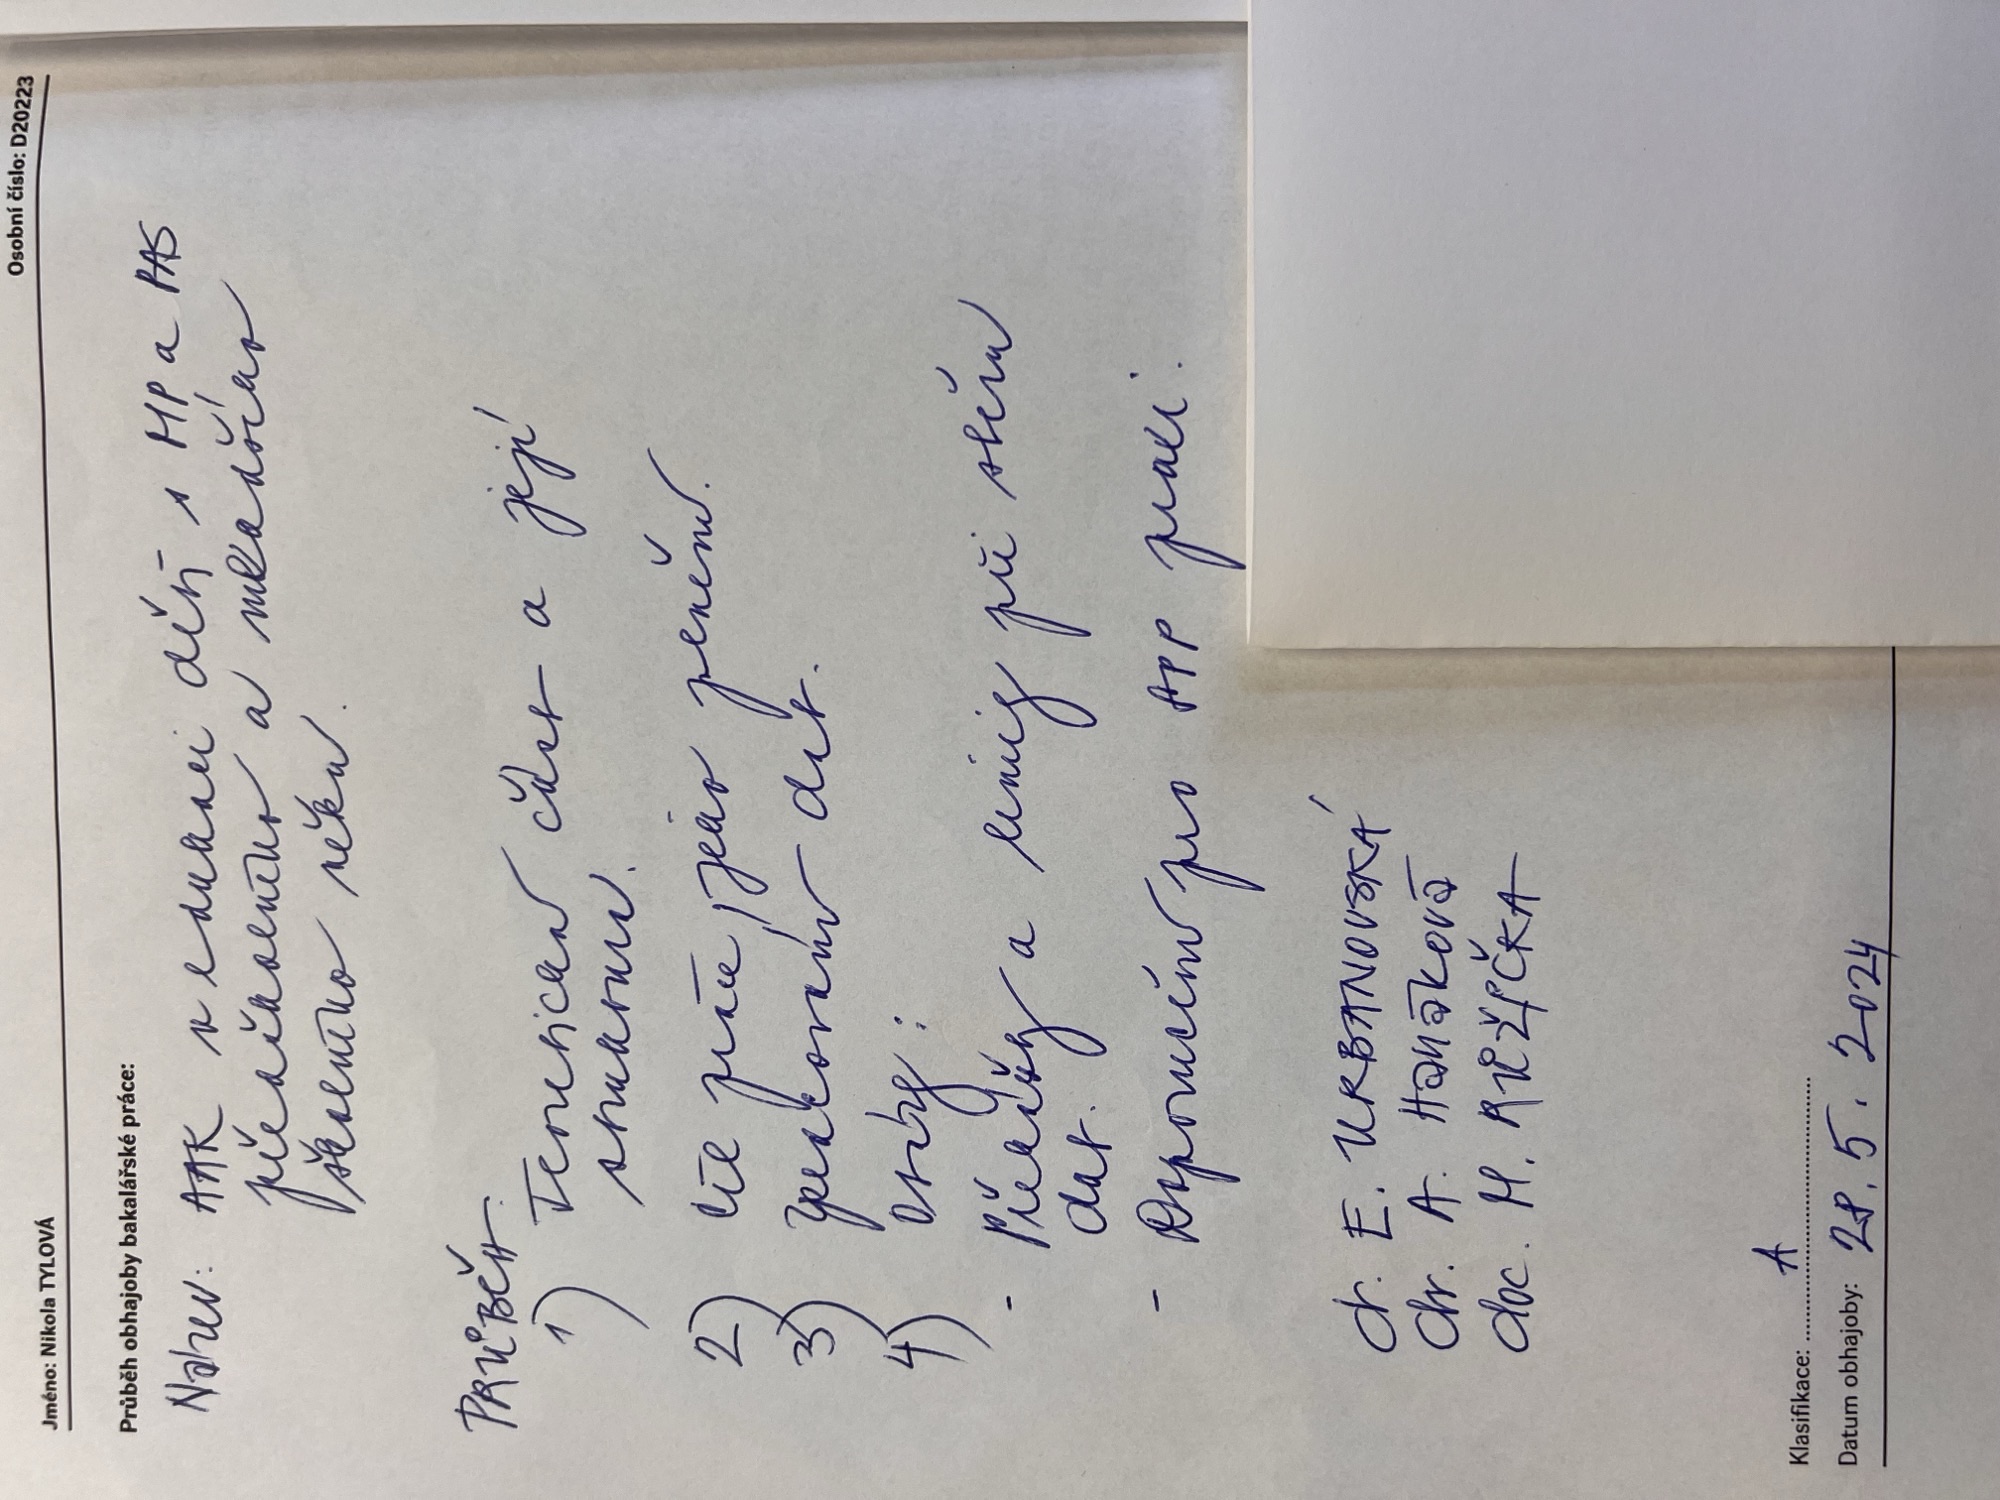 Jméno: Nikola TYLOVÁ Osobní číslo: D20223
Průběh obhajoby bakalářské práce:
Název: AAK v edukaci dětí s MP a PAS
předškolního a mladšího
školního věku.
PRŮBĚH:
1) Teoretická část a její
struktura.
2) Cíle práce, jeho
3) Zpracování dat.
4) Otázky:
- Překážky a limity při sběru
dat.
- Doporučení pro APP praxi.
dr. E. URBANOVSKÁ
dr. A. HANÁKOVÁ
doc. M. RŮŽIČKA
Klasifikace: A
Datum obhajoby: 28. 5. 2024